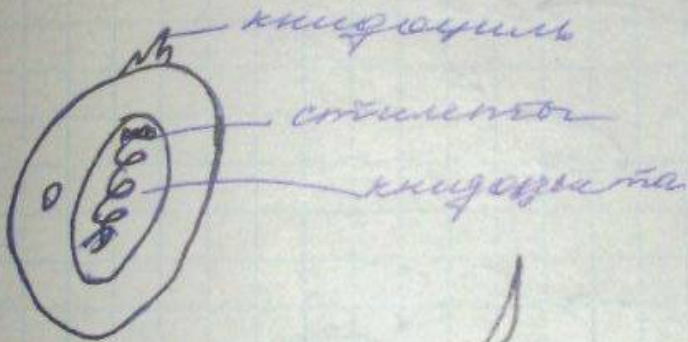 книдоциль
стилеты
книдоциста